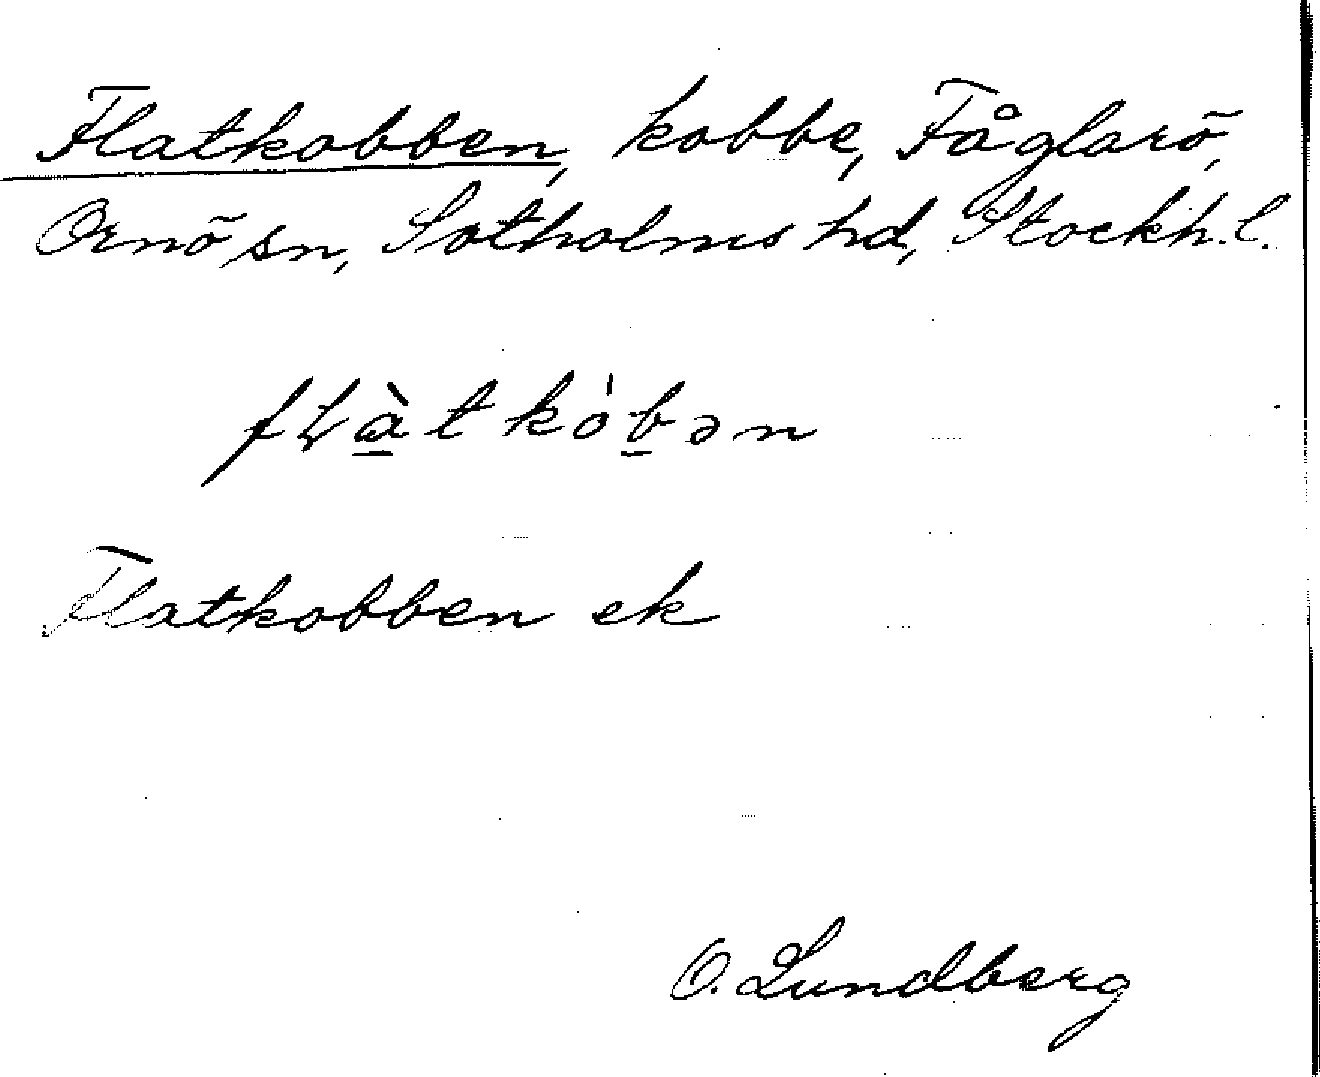 Flatkobben, kobbe, Fåglarö,
Ornö sn, Sotholms hd, Stockh. l.
fLà̱tkȯ́ḇən
Flatkobben ek
O. Lundberg